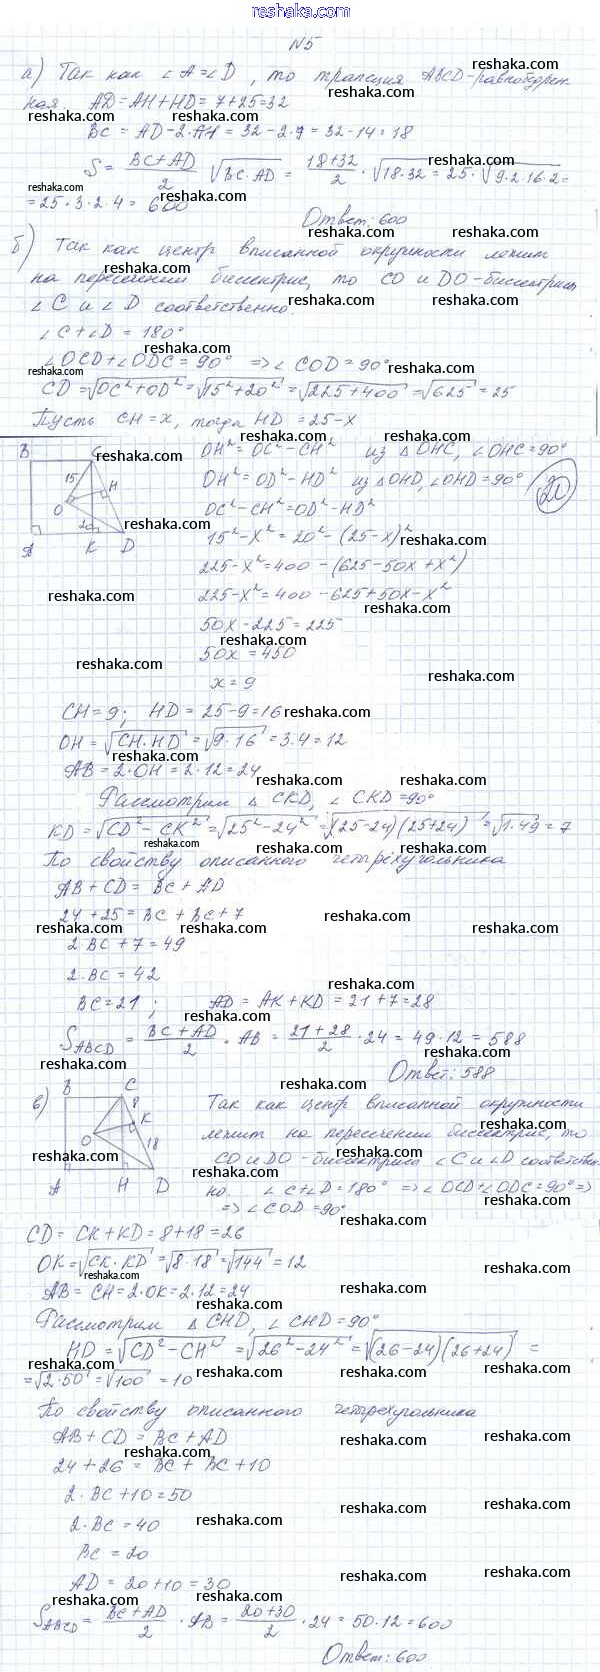 reshaka.com
№5
а) Так как ∠A=∠D, то трапеция ABCD - равнобедрен-
ная. AD=AH+HD=7+25=32
BC = AD-2·AH = 32-2·7=32-14=18
S = (BC+AD)/2 · √(BC·AD) = (18+32)/2 · √(18·32) = 25·√(9·2·16·2) =
=25·3·2·4 = 600
Ответ: 600
б) Так как центр вписанной окружности лежит
на пересечении биссектрис, то CO и DO - биссектрисы
∠C и ∠D соответственно.
∠C+∠D=180°
∠OCD+∠ODC=90° ⇒ ∠COD=90°
CD=√(OC²+OD²)=√(15²+20²)=√(225+400)=√625=25
Пусть CH=x, тогда HD=25-x
B C 15 H O 20 A K D
OH²=OC²-CH² из △OHC, ∠OHC=90°
OH²=OD²-HD² из △OHD, ∠OHD=90°
20
OC²-CH²=OD²-HD²
15²-x²=20²-(25-x)²
225-x²=400-(625-50x+x²)
225-x²=400-625+50x-x²
50x-225=225
50x=450
x=9
CH=9; HD=25-9=16
OH=√(CH·HD)=√(9·16)=3·4=12
AB=2·OH=2·12=24
Рассмотрим △CKD, ∠CKD=90°
KD=√(CD²-CK²)=√(25²-24²)=√((25-24)(25+24))=√(1·49)=7
По свойству описанного четырёхугольника
AB+CD=BC+AD
24+25=BC+BC+7
2·BC+7=49
2·BC=42
BC=21; AD=AK+KD=21+7=28
S ABCD = (BC+AD)/2 · AB = (21+28)/2 · 24 = 49·12 = 588
Ответ: 588
в) B C 8 K O 18 A H D
Так как центр вписанной окружности
лежит на пересечении биссектрис, то
CO и DO - биссектриса ∠C и ∠D соответствен-
но. ∠C+∠D=180° ⇒ ∠OCD+∠ODC=90° ⇒
⇒ ∠COD=90°
CD=CK+KD=8+18=26
OK=√(CK·KD)=√(8·18)=√144=12
AB=CH=2·OK=2·12=24
Рассмотрим △CHD, ∠CHD=90°
HD=√(CD²-CH²)=√(26²-24²)=√((26-24)(26+24))=
=√(2·50)=√100=10
По свойству описанного четырехугольника
AB+CD=BC+AD
24+26=BC+BC+10
2·BC+10=50
2·BC=40
BC=20
AD=20+10=30
S ABCD = (BC+AD)/2 · AB = (20+30)/2 · 24 = 50·12 = 600
Ответ: 600